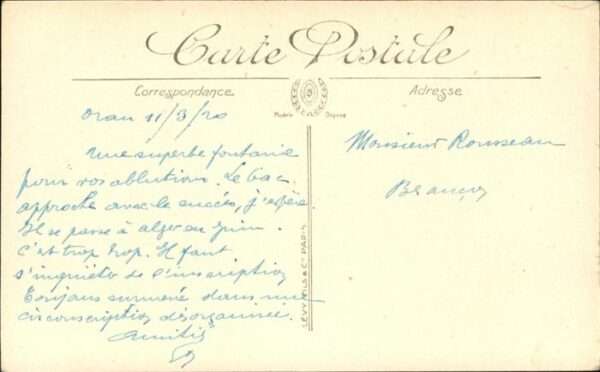 Carte Postale
Correspondance
Adresse
Modèle Déposé
Oran 11/3/20
Une superbe fontaine
pour vos ablutions. Le bac
approche avec le succès, j'espère.
Il se passe à alger en juin.
C'est trop trop. Il faut
s'inquiéter de l'inscription
Toujours surmené dans une
circonscription désorganisée.
Amitié
Monsieur Rousseau
LEVY FILS & Cie PARIS